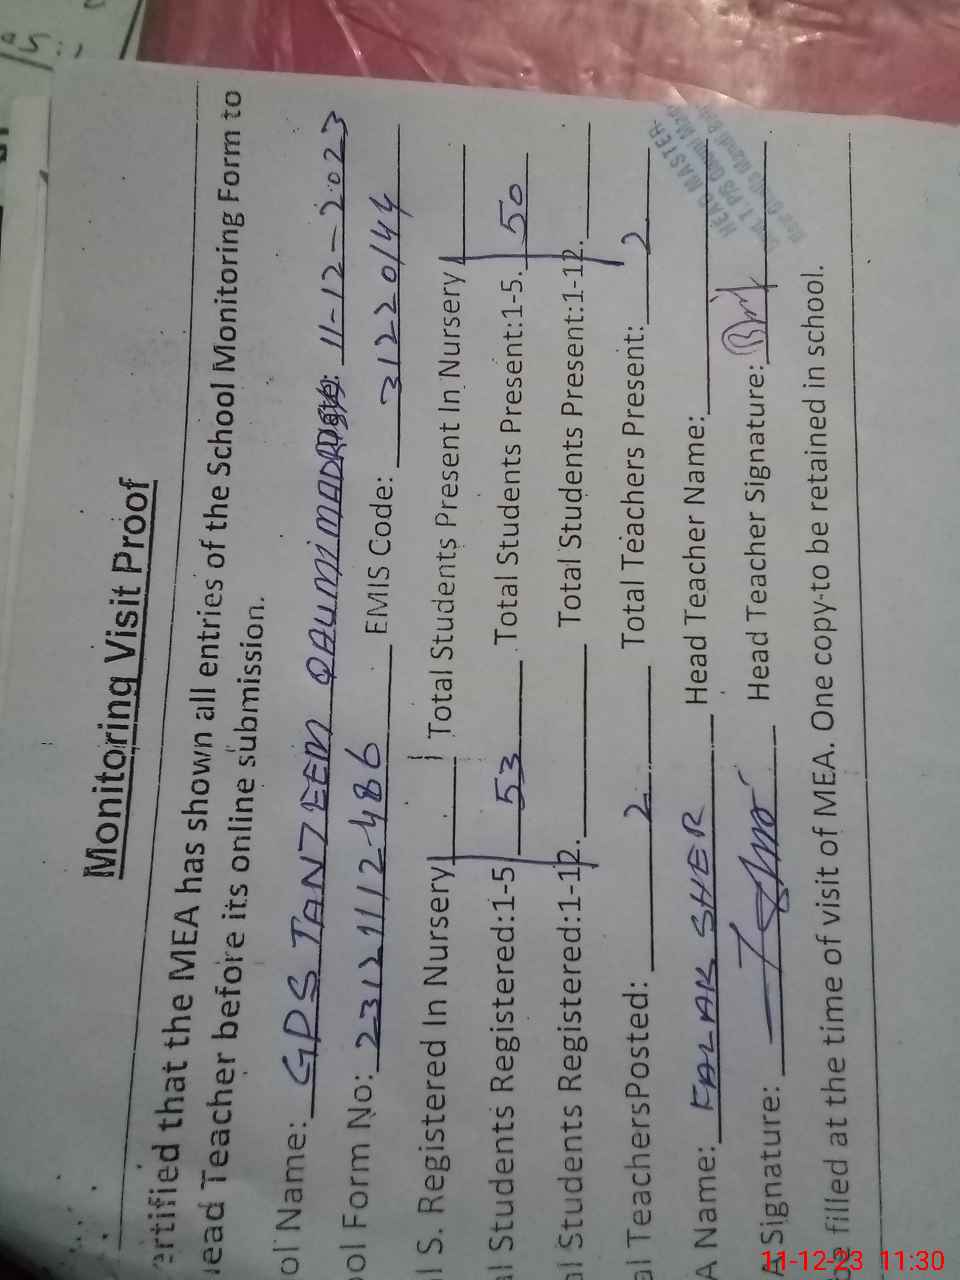 Monitoring Visit Proof
ertified that the MEA has shown all entries of the School Monitoring Form to
lead Teacher before its online submission.
ol Name: GPS TANZEEM QAUMI MADRISA Date: 11-12-2023
ool Form No: 231211112486 EMIS Code: 31220144
l S. Registered In Nursery Total Students Present In Nursery
al Students Registered:1-5 53 Total Students Present:1-5. 50
al Students Registered:1-12. Total Students Present:1-12.
al TeachersPosted: 2 Total Teachers Present: 2
A Name: FALAK SHER Head Teacher Name:
A Signature: Head Teacher Signature:
HEAD MASTER
filled at the time of visit of MEA. One copy-to be retained in school.
11-12-23 11:30